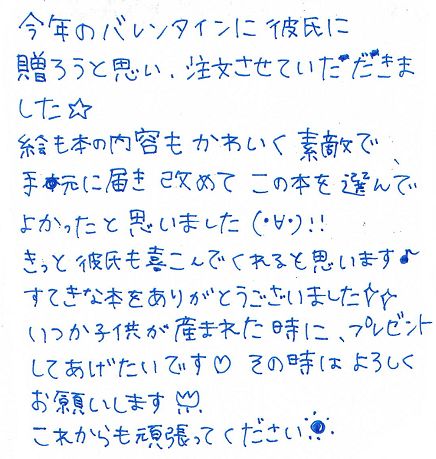 今年のバレンタインに彼氏に
贈ろうと思い、注文させていただきま
した☆
絵も本の内容もかわいく素敵で、
手元に届き改めてこの本を選んで
よかったと思いました(･∀･)!!
きっと彼氏も喜こんでくれると思います♪
すてきな本をありがとうございました☆☆
いつか子供が産まれた時に、プレゼント
してあげたいです♡その時はよろしく
お願いします
これからも頑張ってください